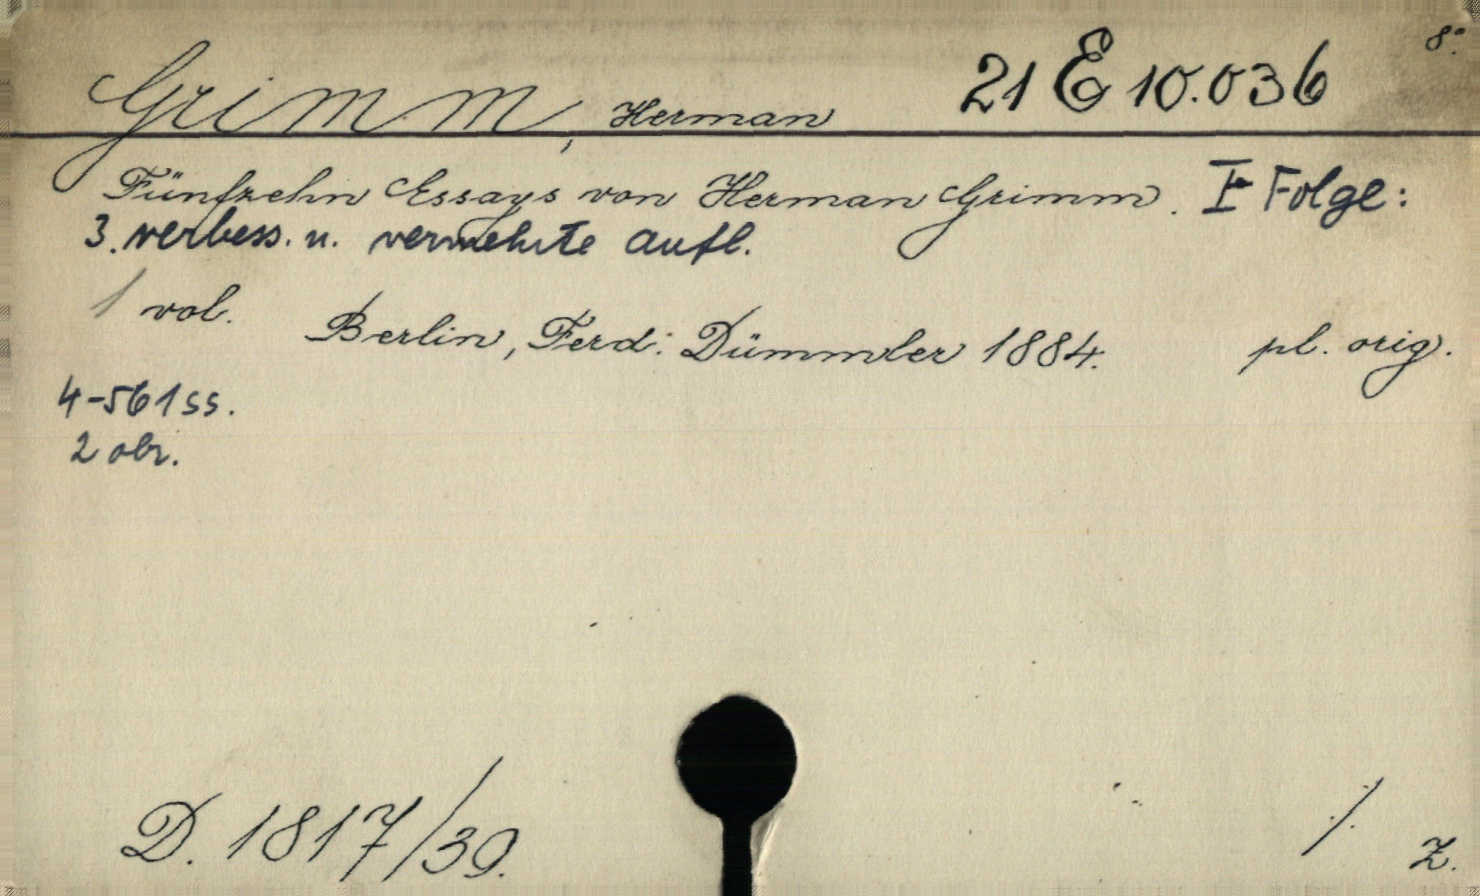 8°.
Grimm, Herman 21 E 10.036
Fünfzehn Essays von Herman Grimm. I Folge:
3. verbess. u. vermehrte Aufl.
1 vol. Berlin, Ferd: Dümmler 1884. pl. orig.
4-561 ss.
2 obr.
D. 1817/39.
./.
Z.